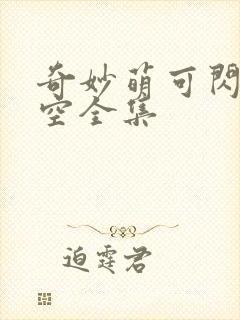 奇妙萌可閃
空全集
迫霆君